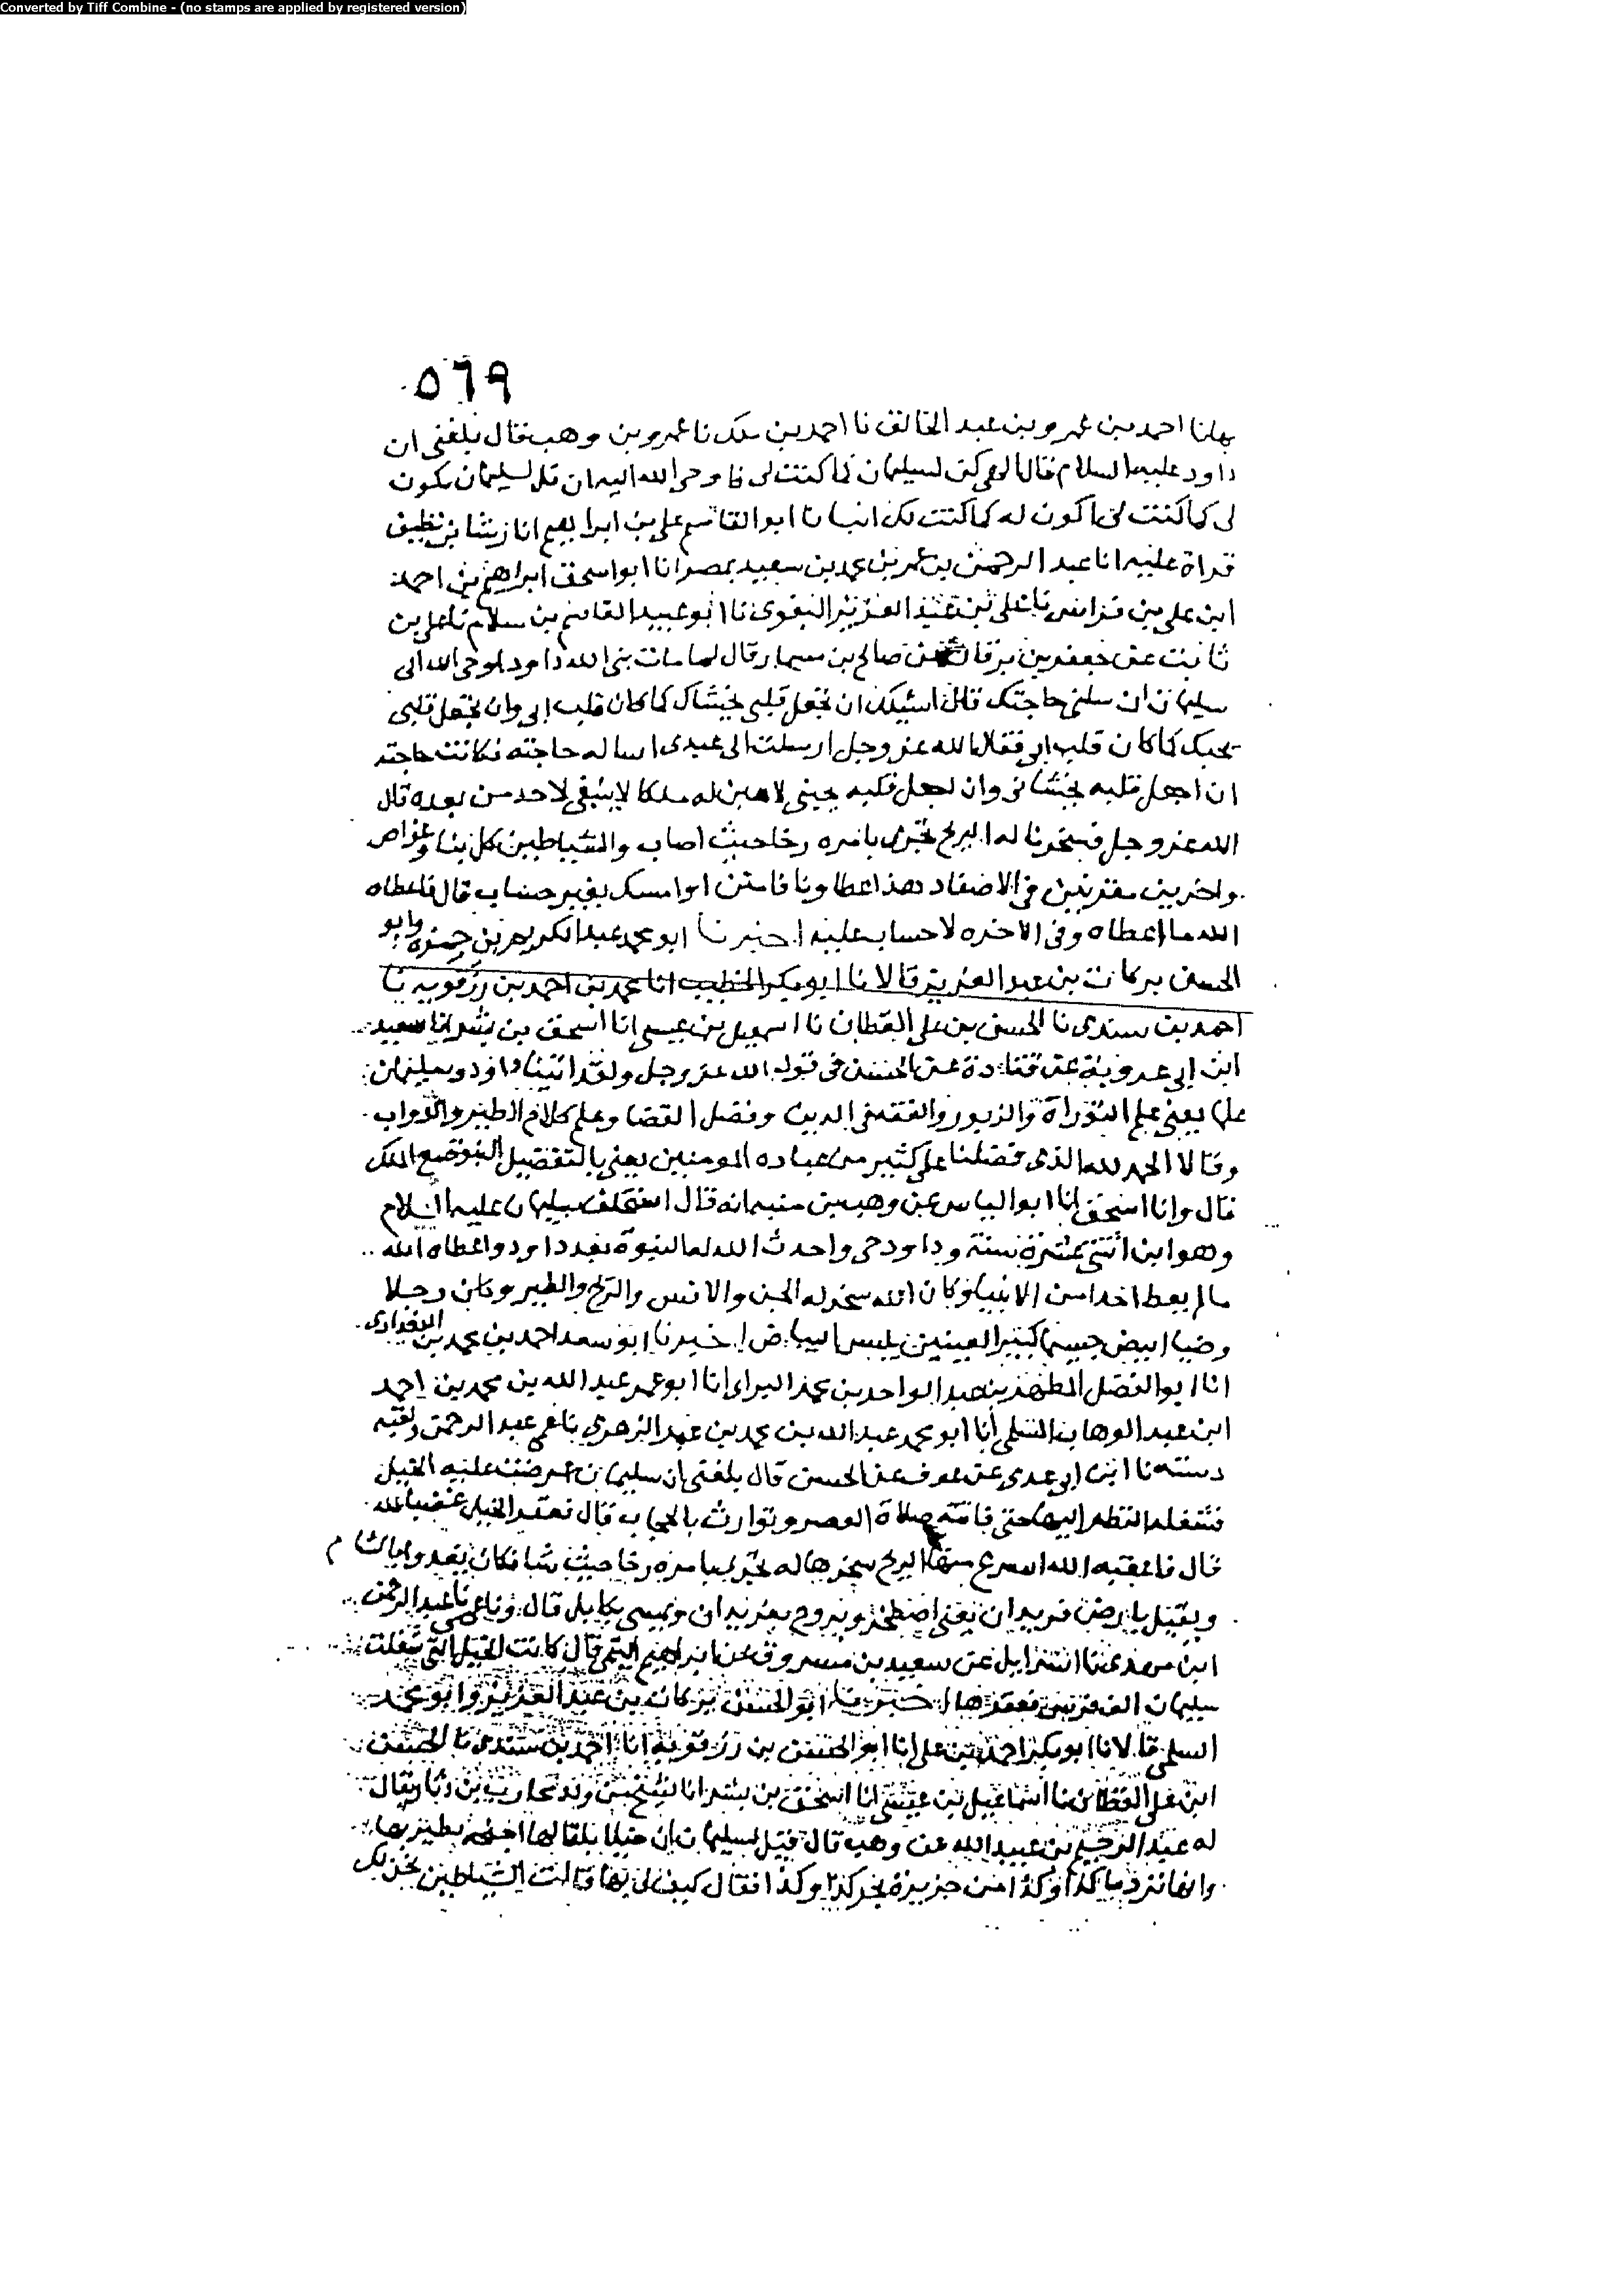 Converted by Tiff Combine - (no stamps are applied by registered version)
٥٦٩
بهانا احمد بن عمرو بن عبد الخالق نا احمد بن ملك نا عمرو بن وهب قال بلغني ان
داود عليه السلام قال الهي كن لسليمان كما كنت لي فاوحى الله اليه ان قل لسليمان يكون
لي كما كنت لي اكون له كما كنت لك انبانا ابو القاسم علي بن ابراهيم انا رشا بن نظيف
قراة عليه انا عبد الرحمن بن عمر بن محمد بن سعيد بمصر انا ابو اسحق ابراهيم بن احمد
ابن علي بن فراس نا علي بن عبد العزيز البغوي نا ابو عبيد القاسم بن سلام نا علي بن
ثابت عن جعفر بن برقان عن صالح بن مسمار قال لما مات نبي الله داود اوحى الله الى
سليمان ان سلني حاجتك قال اسئلك ان تجعل قلبي يخشاك كما كان قلب ابي وان تجعل قلبي
يحبك كما كان قلب ابي فقال الله عز وجل ارسلت الى عبدي اساله حاجته فكانت حاجته
ان اجعل قلبه يخشاني وان اجعل قلبه يحبني لاهبن له ملكا لا ينبغي لاحد من بعده قال
الله عز وجل فسخرنا له الريح تجري بامره رخا حيث اصاب والشياطين كل بنا وغواص
واخرين مقرنين في الاصفاد هذا عطاونا فامنن او امسك بغير حساب قال فاعطاه
الله ما اعطاه وفي الاخره لا حساب عليه اخبرنا ابو محمد عبد الكريم بن حمزه وابو
الحسن بركات بن عبد العزيز قالا نا ابو بكر الخطيب انا محمد بن احمد بن رزقويه نا
احمد بن سندي نا الحسن بن علي القطان نا اسمعيل بن عيسى انا اسحق بن بشر انا سعيد
ابن ابي عروبة عن قتادة عن الحسن في قوله الله عز وجل ولقد اتينا داود وسليمان
علما يعني علم التوراة والزبور والفقه في الدين وفصل القضا وعلم كلام الطير والدواب
وقالا الحمد لله الذي فضلنا على كثير من عباده المومنين يعني بالتفضيل النبوة مع الملك
قال وانا اسحق انا ابو الياس عن وهب بن منبه انه قال استخلف سليمان عليه السلام
وهو ابن اثنتي عشرة سنة وداود حي واحدث الله له النبوة بعد داود واعطاه الله
ما لم يعط احدا من الانبيا وكان الله سخر له الجن والانس والريح والطير وكان رجلا
وضيا ابيض جسيما كبير العينين يلبس البياض اخبرنا ابو سعد احمد بن محمد بن البغدادي
انا ابو الفضل المطهر بن عبد الواحد بن محمد البراني انا ابو عمر عبد الله بن محمد بن احمد
ابن عبد الوهاب السلمي انا ابو محمد عبد الله بن محمد بن عمر الزهري نا عمي عبد الرحمن ولقبه
رسته نا ابن ابي عدي عن عوف عن الحسن قال بلغني ان سليمان عرضت عليه الخيل
فشغله النظر اليها حتى فاتته صلاة العصر وتوارت بالحجاب قال فعقر الخيل غضبا لله
قال فاعقبه الله اسرع منها الريح سخرها له تجري بامره رخا حيث شا فكان يغدو بايليا شام
ويقيل بارض فريدان يعني اصطخر ويروح بفريدان ويمسي بكابل قال ونا عمي نا عبد الرحمن
ابن مهدي نا اسرايل عن سعيد بن مسروق عن ابراهيم التيمي قال كانت الخيل التي شغلت
سليمان الف فرس فعقرها اخبرنا ابو الحسن بركات بن عبد العزيز وابو محمد
السلمي قالا نا ابو بكر احمد بن علي انا ابو الحسن بن رزقويه انا احمد بن سندي نا الحسن
ابن علي القطان نا اسماعيل بن عيسى انا اسحق بن بشر انا شيخ من ولد محارب بن دثار يقال
له عبد الرحيم بن عبيد الله عن وهب قال قيل لسليمان ان خيلا بلقا لها اجنحة تطير بها
وانها ترد ما كذا وكذا من جزيرة بحر كذا وكذا فقال كيف لي بها قالت الشياطين نحن لك